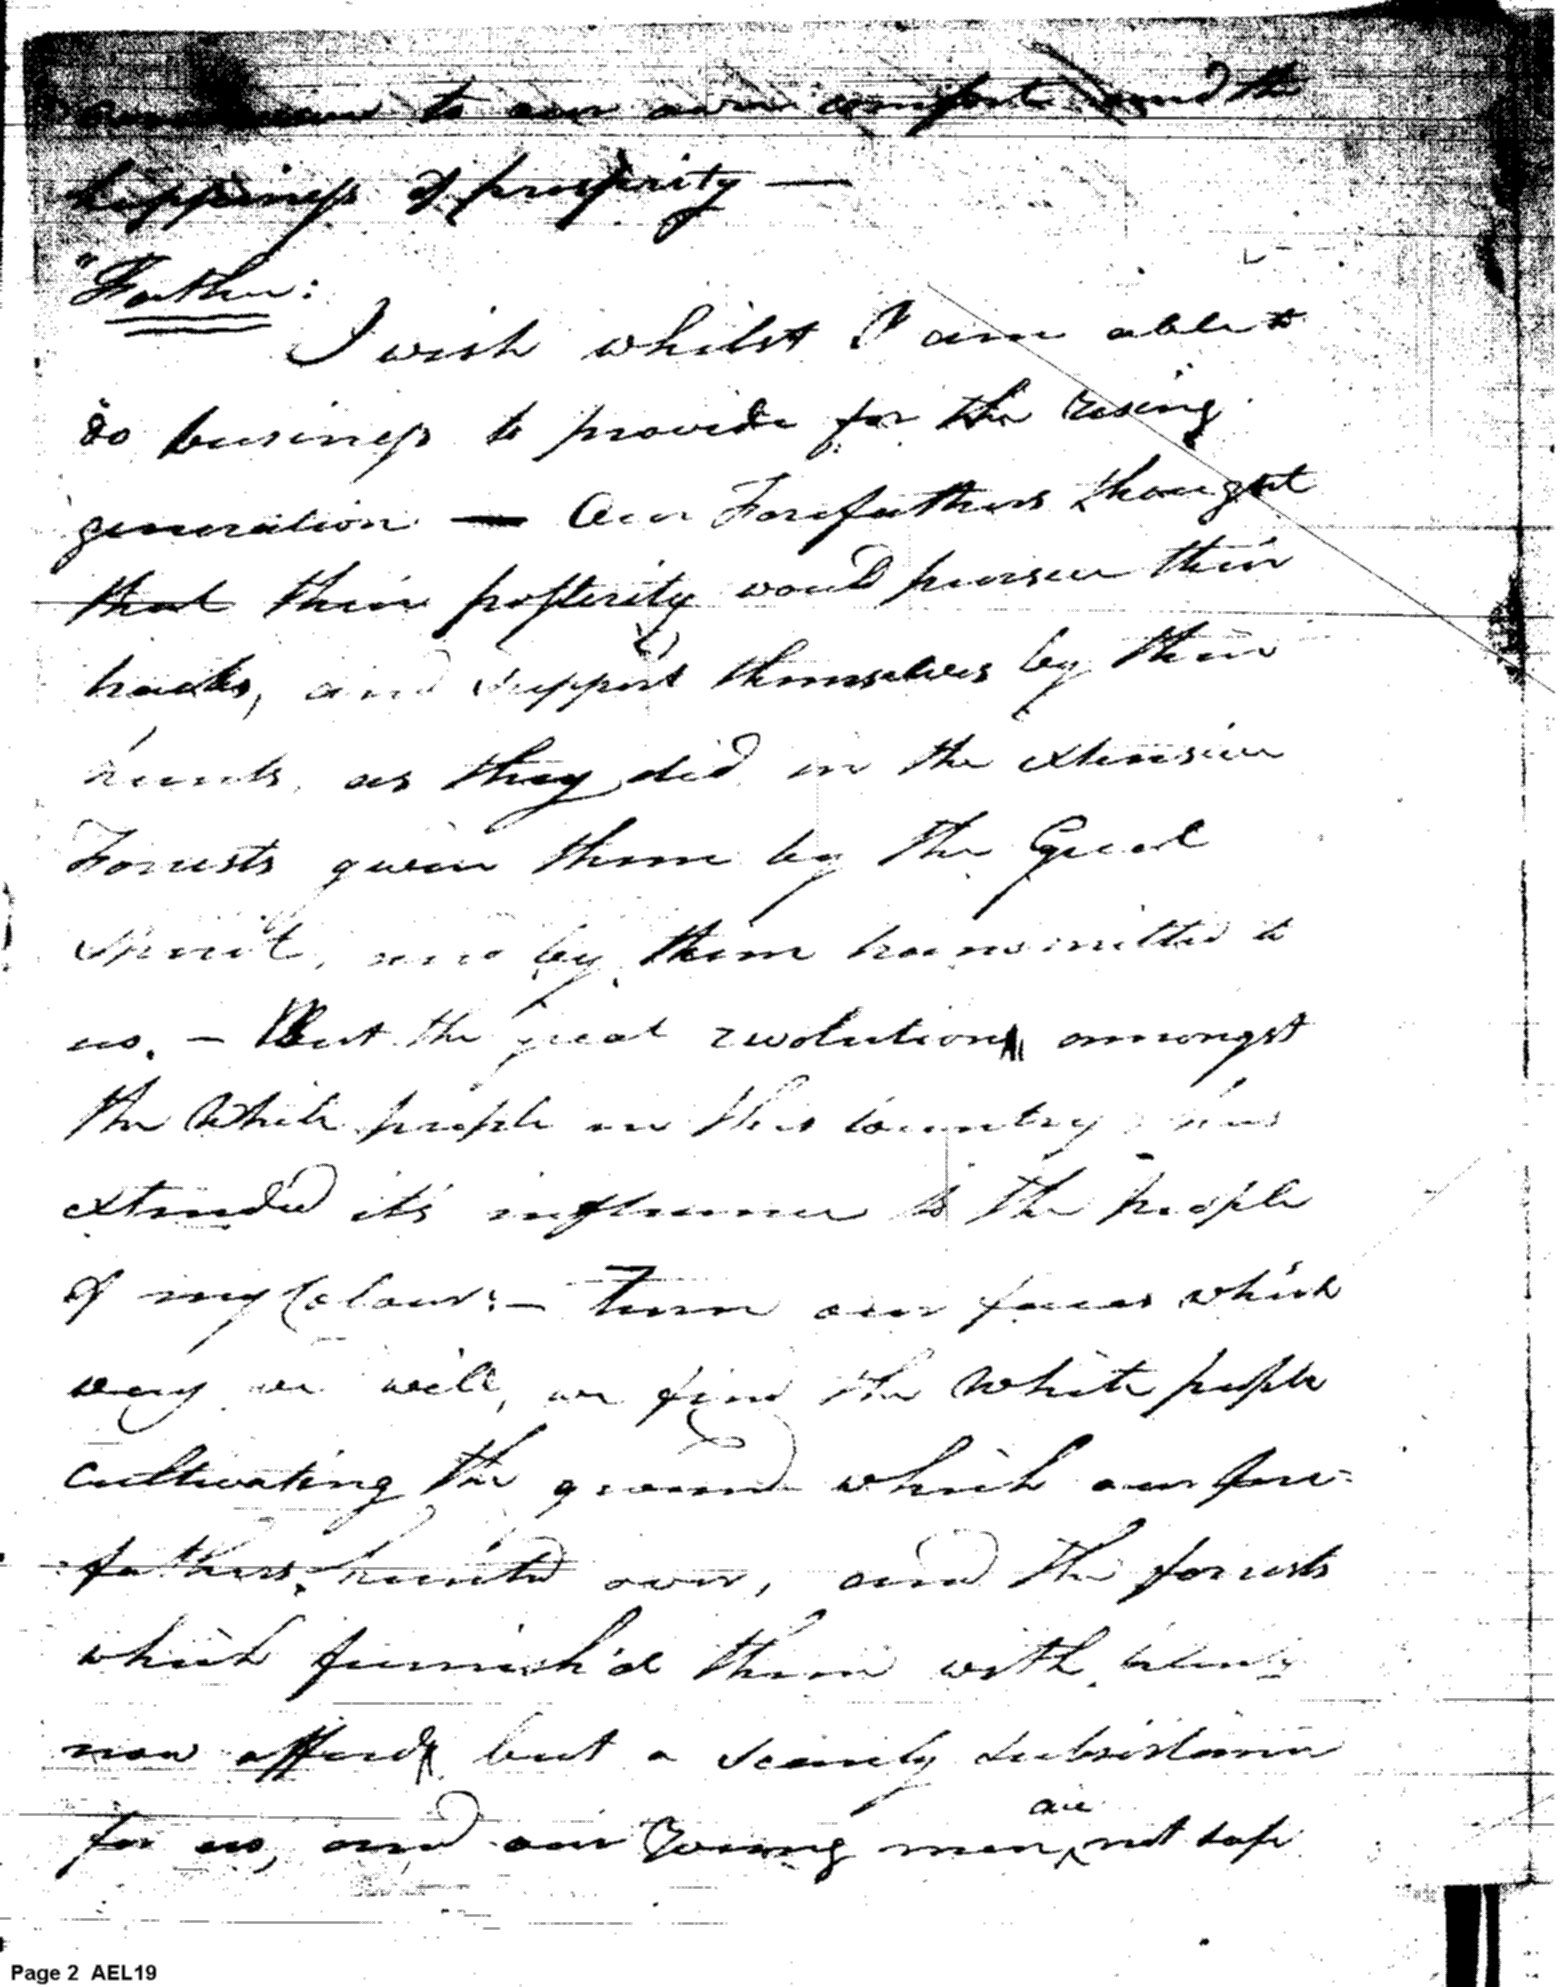 to our own comfort and the
happiness of prosperity —
"Father:
I wish whilst I am able to
do business to provide for the rising
generation — Our Forefathers thought
that their posterity would pursue their
tracks, and support themselves by their
hunts, as they did in the extensive
Forrests given them by the Great
Spirit, and by them transmitted to
us. — But the great revolution amongst
the White people in this Country has
extended it's influence to the people
of my Colour: — Turn our faces which
way we will, we find the White people
cultivating the ground which our fore=
fathers hunted over, and the forrests
which furnish'd them with plenty
now afford but a scanty subsistance
for us, and our Young men are not safe
Page 2 AEL19